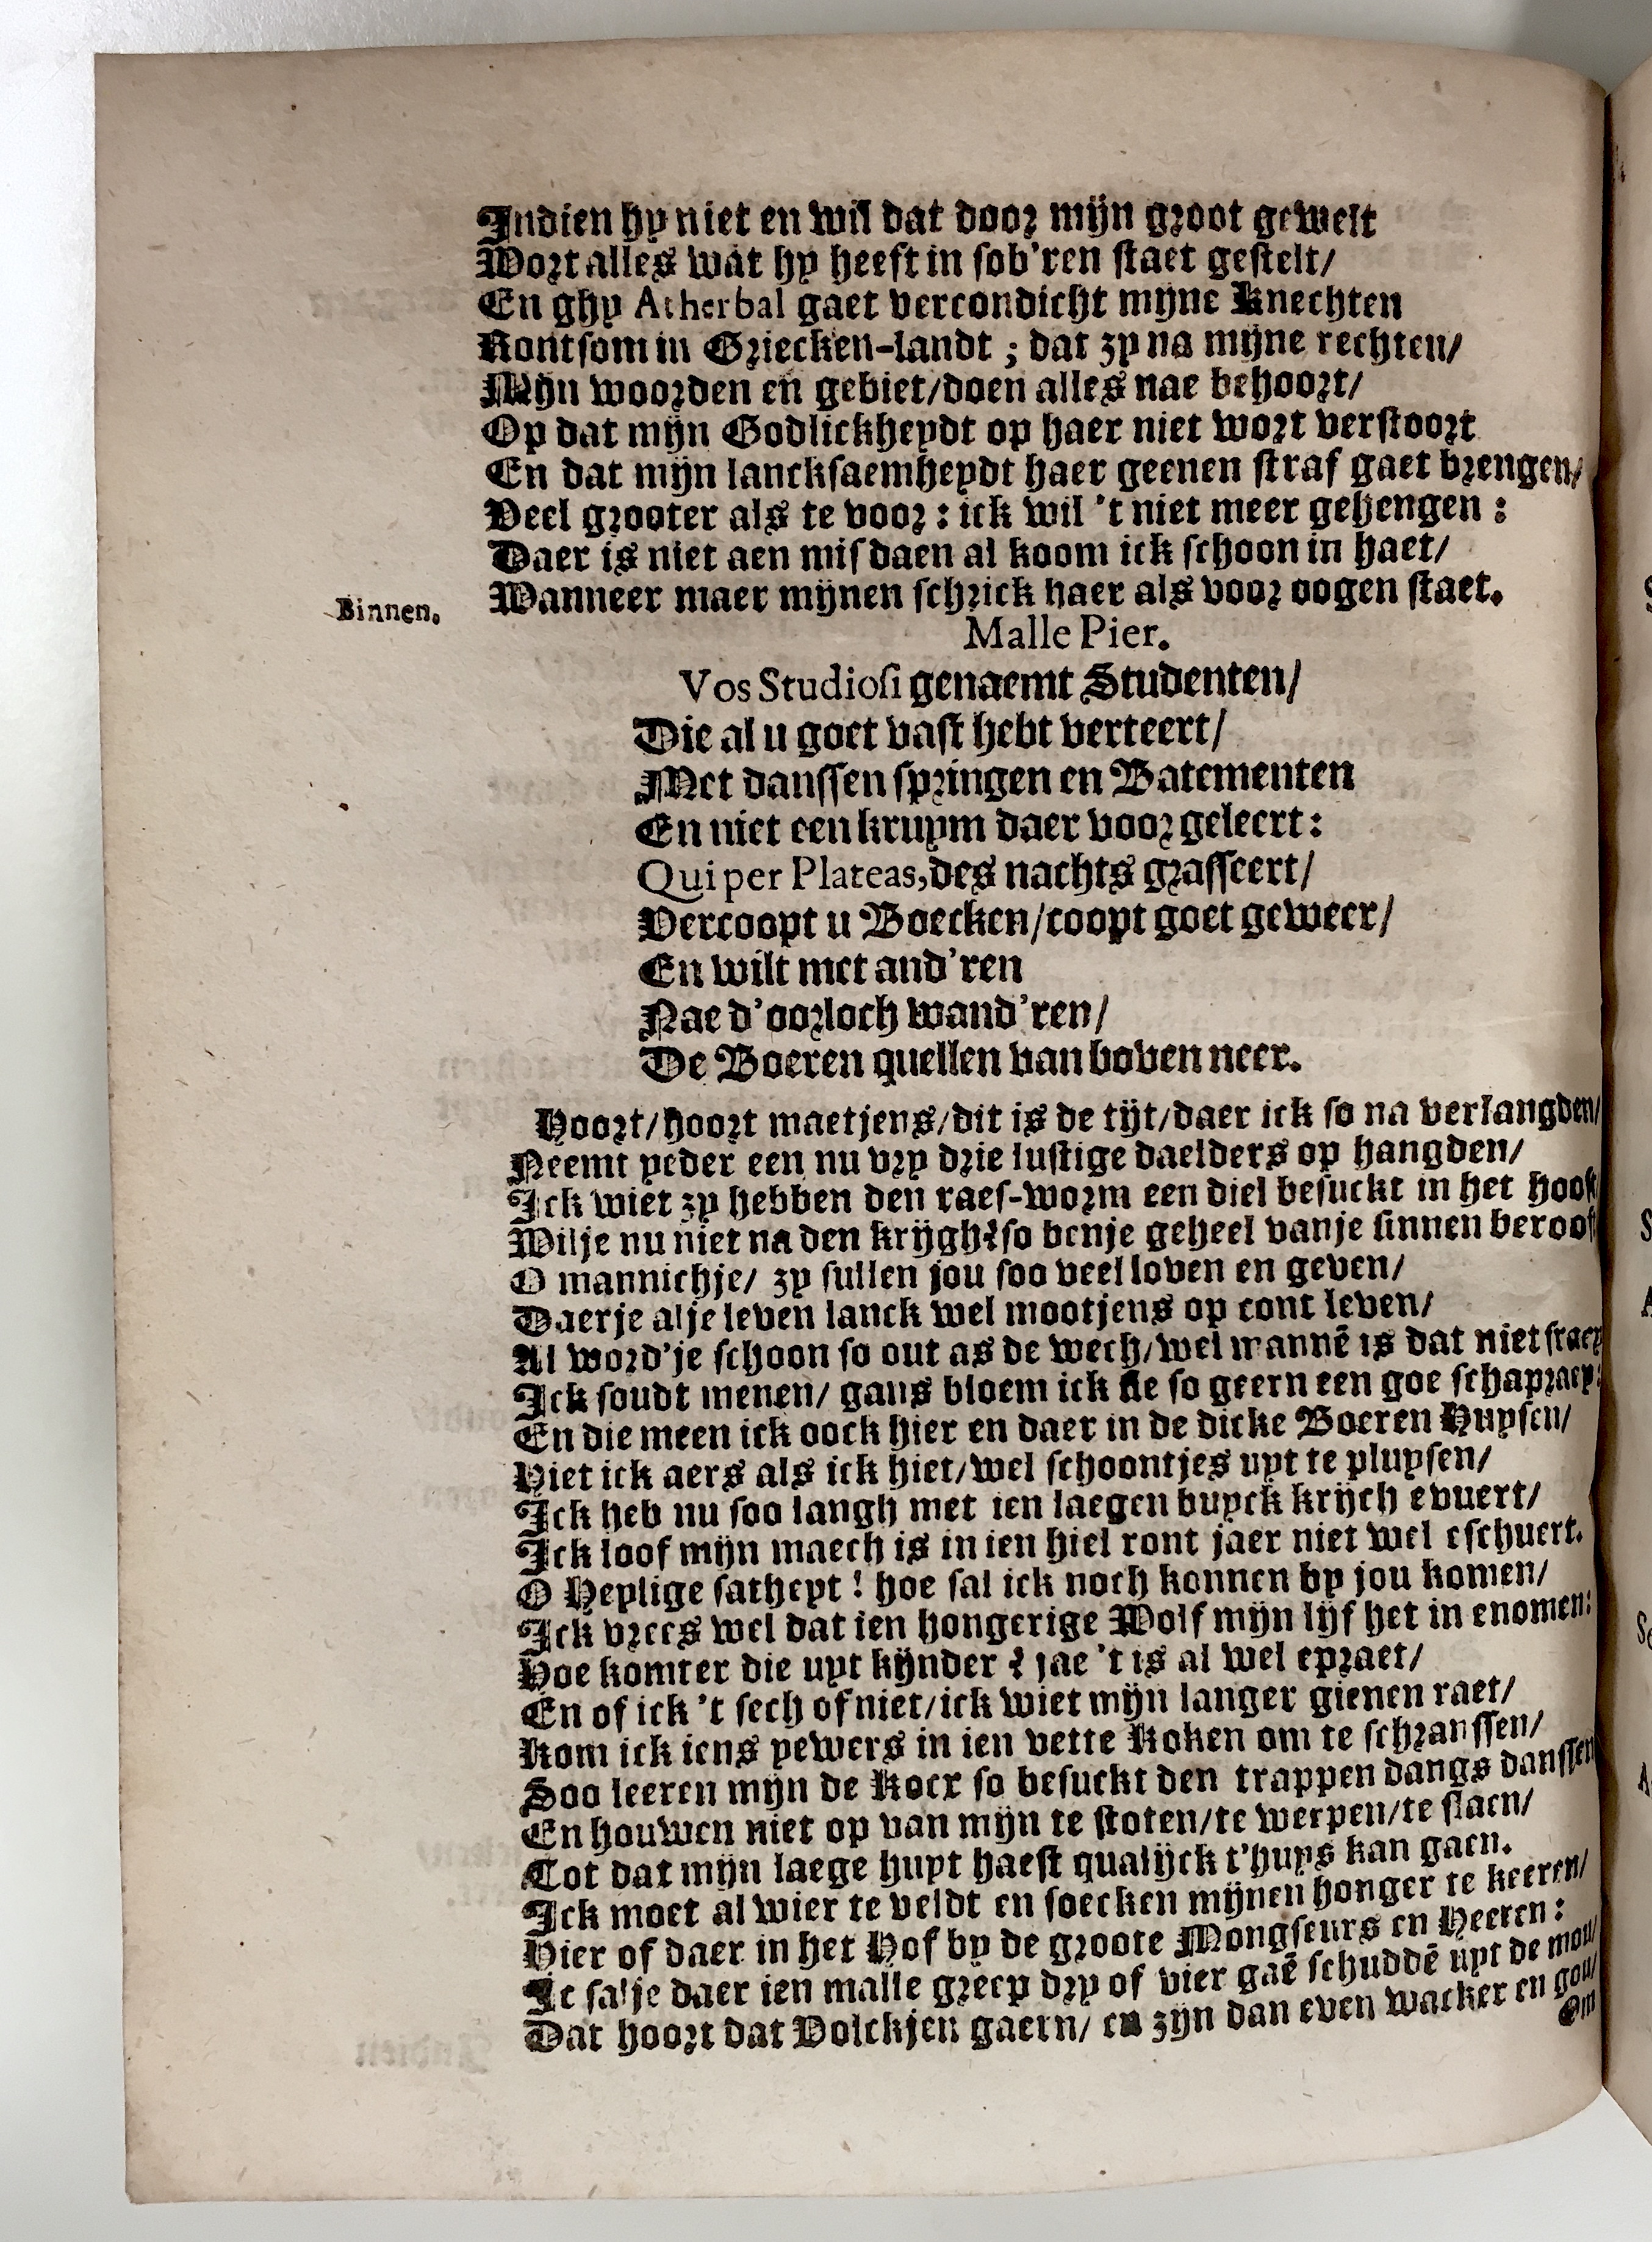 Indien hy niet en wil dat door mijn groot gewelt
Wort alles wat hy heeft in sob'ren staet gestelt/
En ghy Atherbal gaet vercondicht mijne Knechten
Rontsom in Griecken-landt ; dat zy na mijne rechten/
Mijn woorden en gebiet/doen alles nae behoort/
Op dat mijn Godlickheydt op haer niet wort verstoort
En dat mijn lancksaemheydt haer geenen straf gaet brengen/
Veel grooter als te voor : ick wil 't niet meer gehengen :
Daer is niet aen misdaen al koom ick schoon in haet/
Wanneer maer mijnen schrick haer als voor oogen staet.
Binnen.
Malle Pier.
Vos Studiosi genaemt Studenten/
Die al u goet vast hebt verteert/
Met danssen springen en Batementen
En niet een kruym daer voor geleert:
Qui per Plateas, des nachts grasseert/
Vercoopt u Boecken/coopt goet geweer/
En wilt met and'ren
Nae d'oorloch wand'ren/
De Boeren quellen van boven neer.
Hoort/hoort maetjens/dit is de tijt/daer ick so na verlangden/
Neemt yeder een nu vry drie lustige daelders op hangden/
Ick wiet zy hebben den raes-worm een diel besuckt in het hooft
Wilje nu niet na den krijgh? so benje geheel vanje sinnen berooft
O mannichje/ zy sullen jou soo veel loven en geven/
Daerje alje leven lanck wel mootjens op cont leven/
Al word'je schoon so out as de wech/wel mannē is dat niet fraey
Ick soudt menen/ gans bloem ick sie so geern een goe schapraey:
En die meen ick oock hier en daer in de dicke Boeren Huysen/
Hiet ick aers als ick hiet/wel schoontjes uyt te pluysen/
Ick heb nu soo langh met ien laegen buyck krijch evuert/
Ick loof mijn maech is in ien hiel ront jaer niet wel eschuert.
O Heylige satheyt ! hoe sal ick noch konnen by jou komen/
Ick vrees wel dat ien hongerige Wolf mijn lijf het in enomen:
Hoe komter die uyt kijnder ? jae 't is al wel epraet/
En of ick 't sech of niet/ick wiet mijn langer gienen raet/
Kom ick iens yewers in ien vette Koken om te schranssen/
Soo leeren mijn de Kocx so besuckt den trappen dangs danssen
En houwen niet op van mijn te stoten/te werpen/te slaen/
Tot dat mijn laege huyt haest qualijck t'huys kan gaen.
Ick moet al wier te veldt en soecken mijnen honger te keeren/
Hier of daer in het Hof by de groote Mongseurs en Heeren :
Ic salje daer ien malle greep dry of vier gaē schuddē uyt de mou/
Dat hoort dat Volckjen gaern/ en zijn dan even wacker en gou/
Om